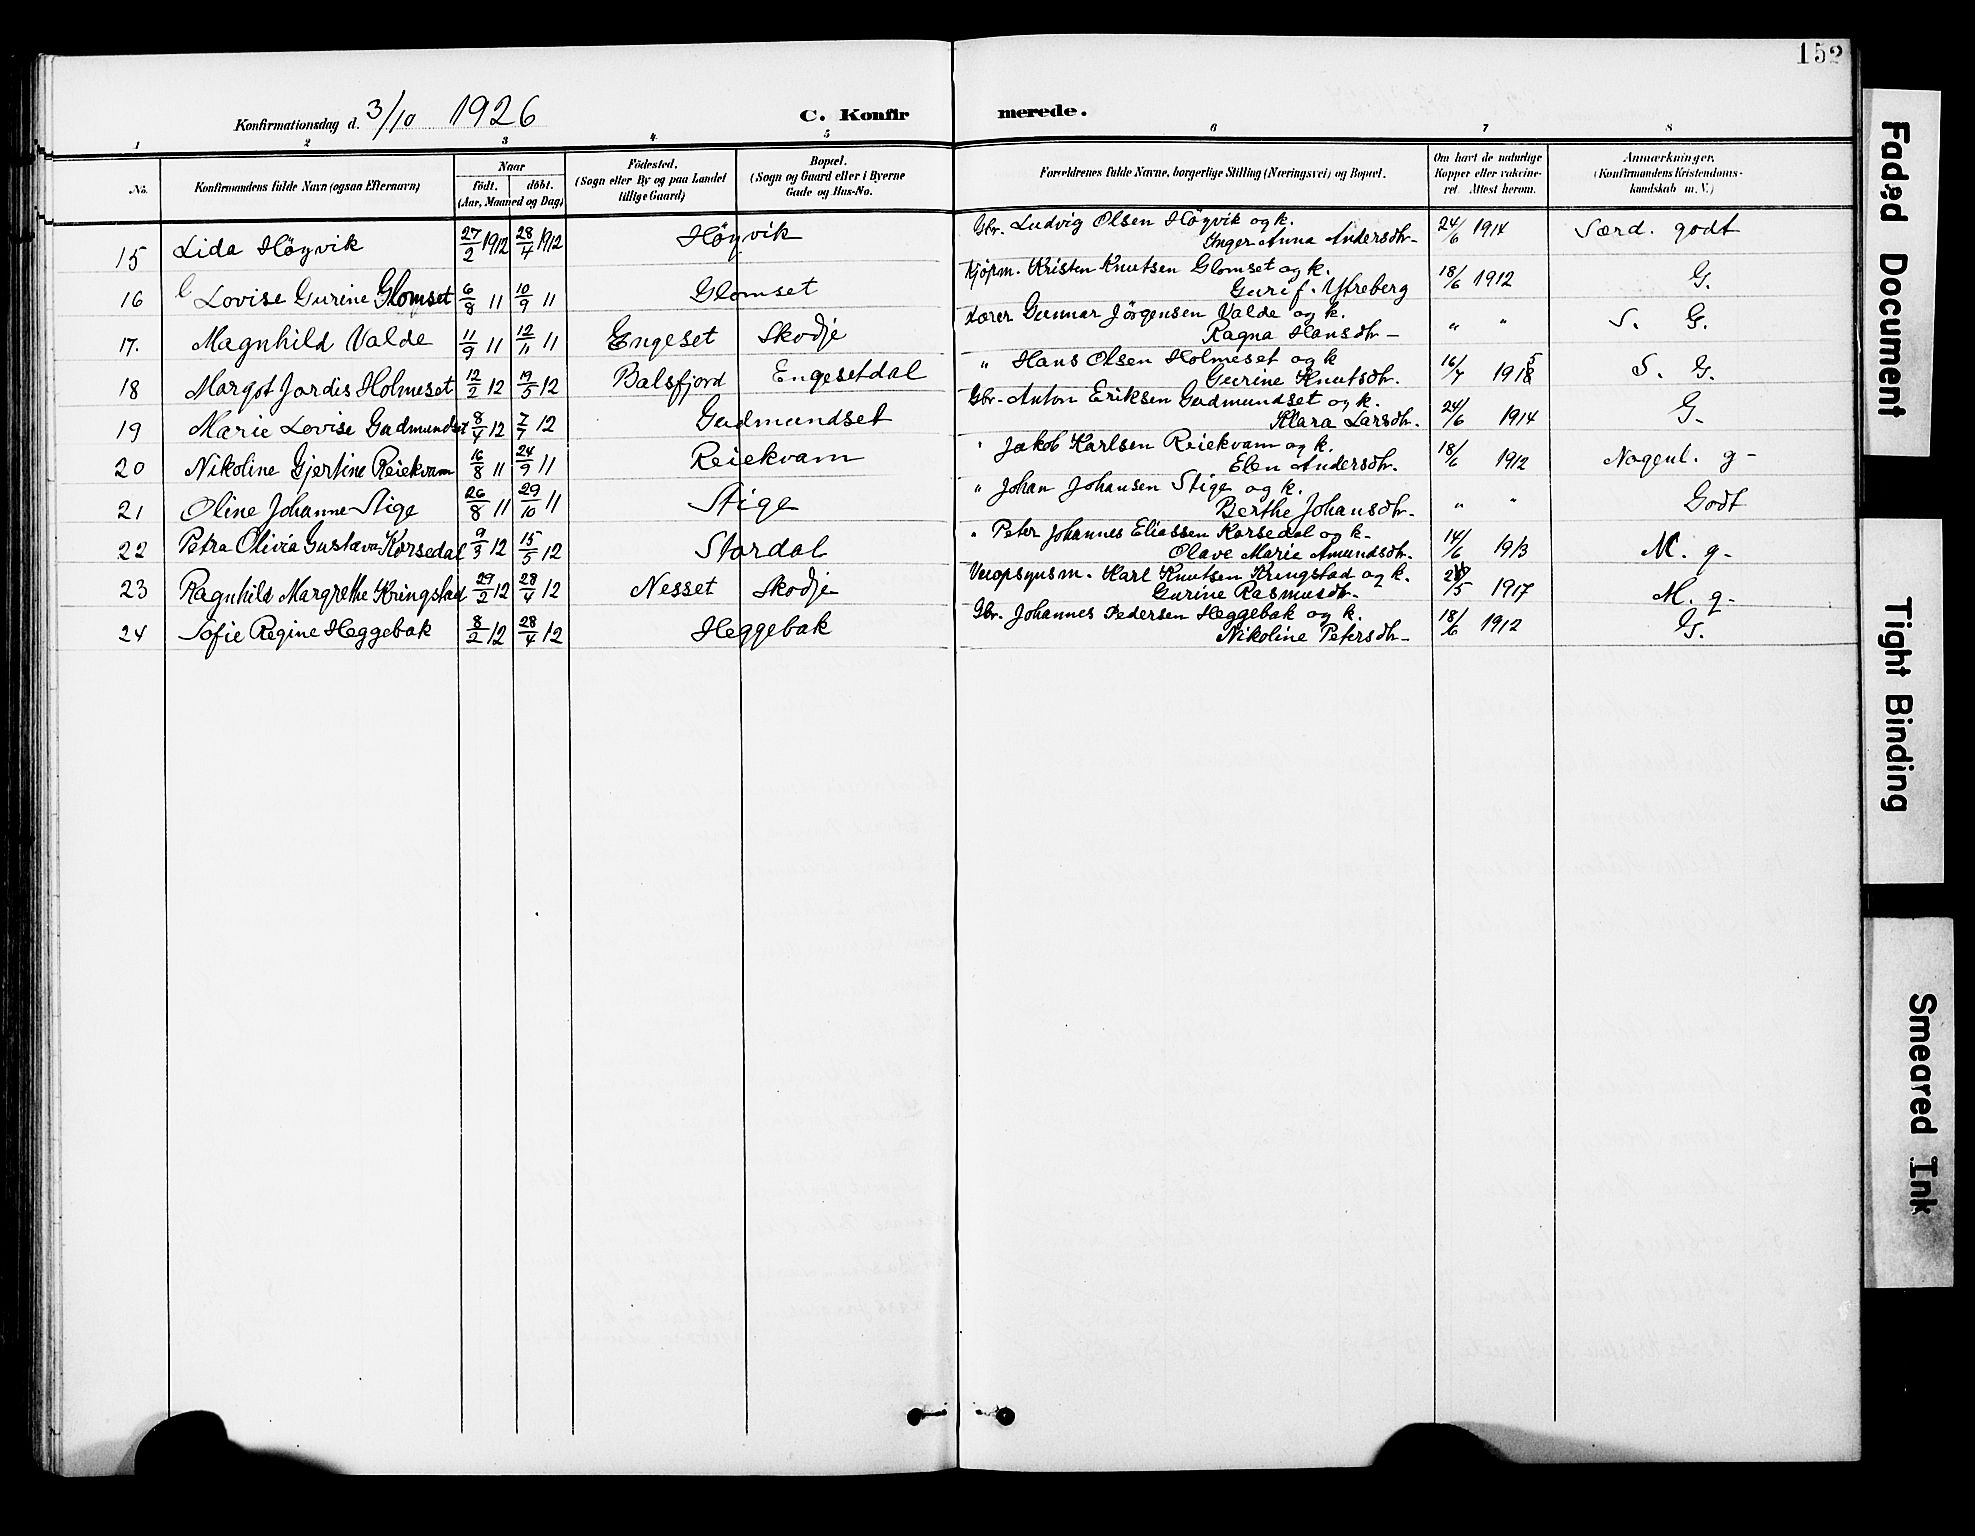 152
Konfirmationsdag d. 3/10 1926 C. Konfirmerede.
1 2 3 4 5 6 7 8
No. Konfirmandens fulde Navn (ogsaa Efternavn) Naar født. døbt. (Aar, Maaned og Dag) Fødested. (Sogn eller By og paa Landet tillige Gaard) Bopæl. (Sogn og Gaard eller i Byerne Gade og Hus-No. Forældrenes fulde Navne, borgerlige Stilling (Næringsvei) og Bopæl. Om havt de naturlige Kopper eller vakcineret. Attest herom. Anmærkninger. (Konfirmandens Kristendomskundskab m. V.)
15 Lida Høgvik 27/2 1912 28/4 1912 Høgvik Gbr. Ludvig Olsen Høgvik og k. Inger Anna Andersdtr- 24/6 1914 Særd. godt
16 Lovise Gurine Glomset 6/8 11 10/9 11 Glomset Kjøpm. Kristen Knutsen Glomset og k. Guri f. Ytreberg 18/6 1912 G.
17. Magnhild Valde 11/9 11 12/11 11 Engeset Skodje Lærer Gunnar Jörgensen Valde og k. Ragna Hansdtr- " " S. G.
18 Margot Jordis Holmeset 12/2 12 19/5 12 Balsfjord Engesetdal " Hans Olsen Holmeset og k Gurine Knutsdtr. 16/7 1915 S. G.
19 Marie Lovise Gudmundset 8/4 12 7/7 12 Gudmundset Gbr. Anton Eriksen Gudmundset og k. Klara Larsdtr. 24/6 1914 G-
20 Nikoline Gjertine Reiekvam 16/8 11 24/9 11 Reiekvam " Jakob Karlsen Reiekvam og k. Elen Andersdtr. 18/6 1912 Nogenl. g-
21 Oline Johanne Stige 26/8 11 29/10 11 Stige " Johan Johansen Stige og k. Berthe Johansdtr. " " Godt
22 Petra Olivia Gustava Korsedal 9/3 12 15/5 12 Stordal " Peter Johannes Eliassen Korsedal og k- Olave Marie Amundsdtr. 14/6 1913 M. g-
23 Ragnhild Margrethe Kringstad 29/2 12 28/4 12 Nesset Skodje Veiopsynsm. Karl Knutsen Kringstad og k. Gurine Rasmusdtr. /5 1917 M. g-
24 Sofie Regine Heggebak 8/2 12 28/4 12 Heggebak Gbr. Johannes Pedersen Heggebak og k. Nikoline Petersdtr- 18/6 1912 G.
Faded Document
Tight Binding
Smeared Ink